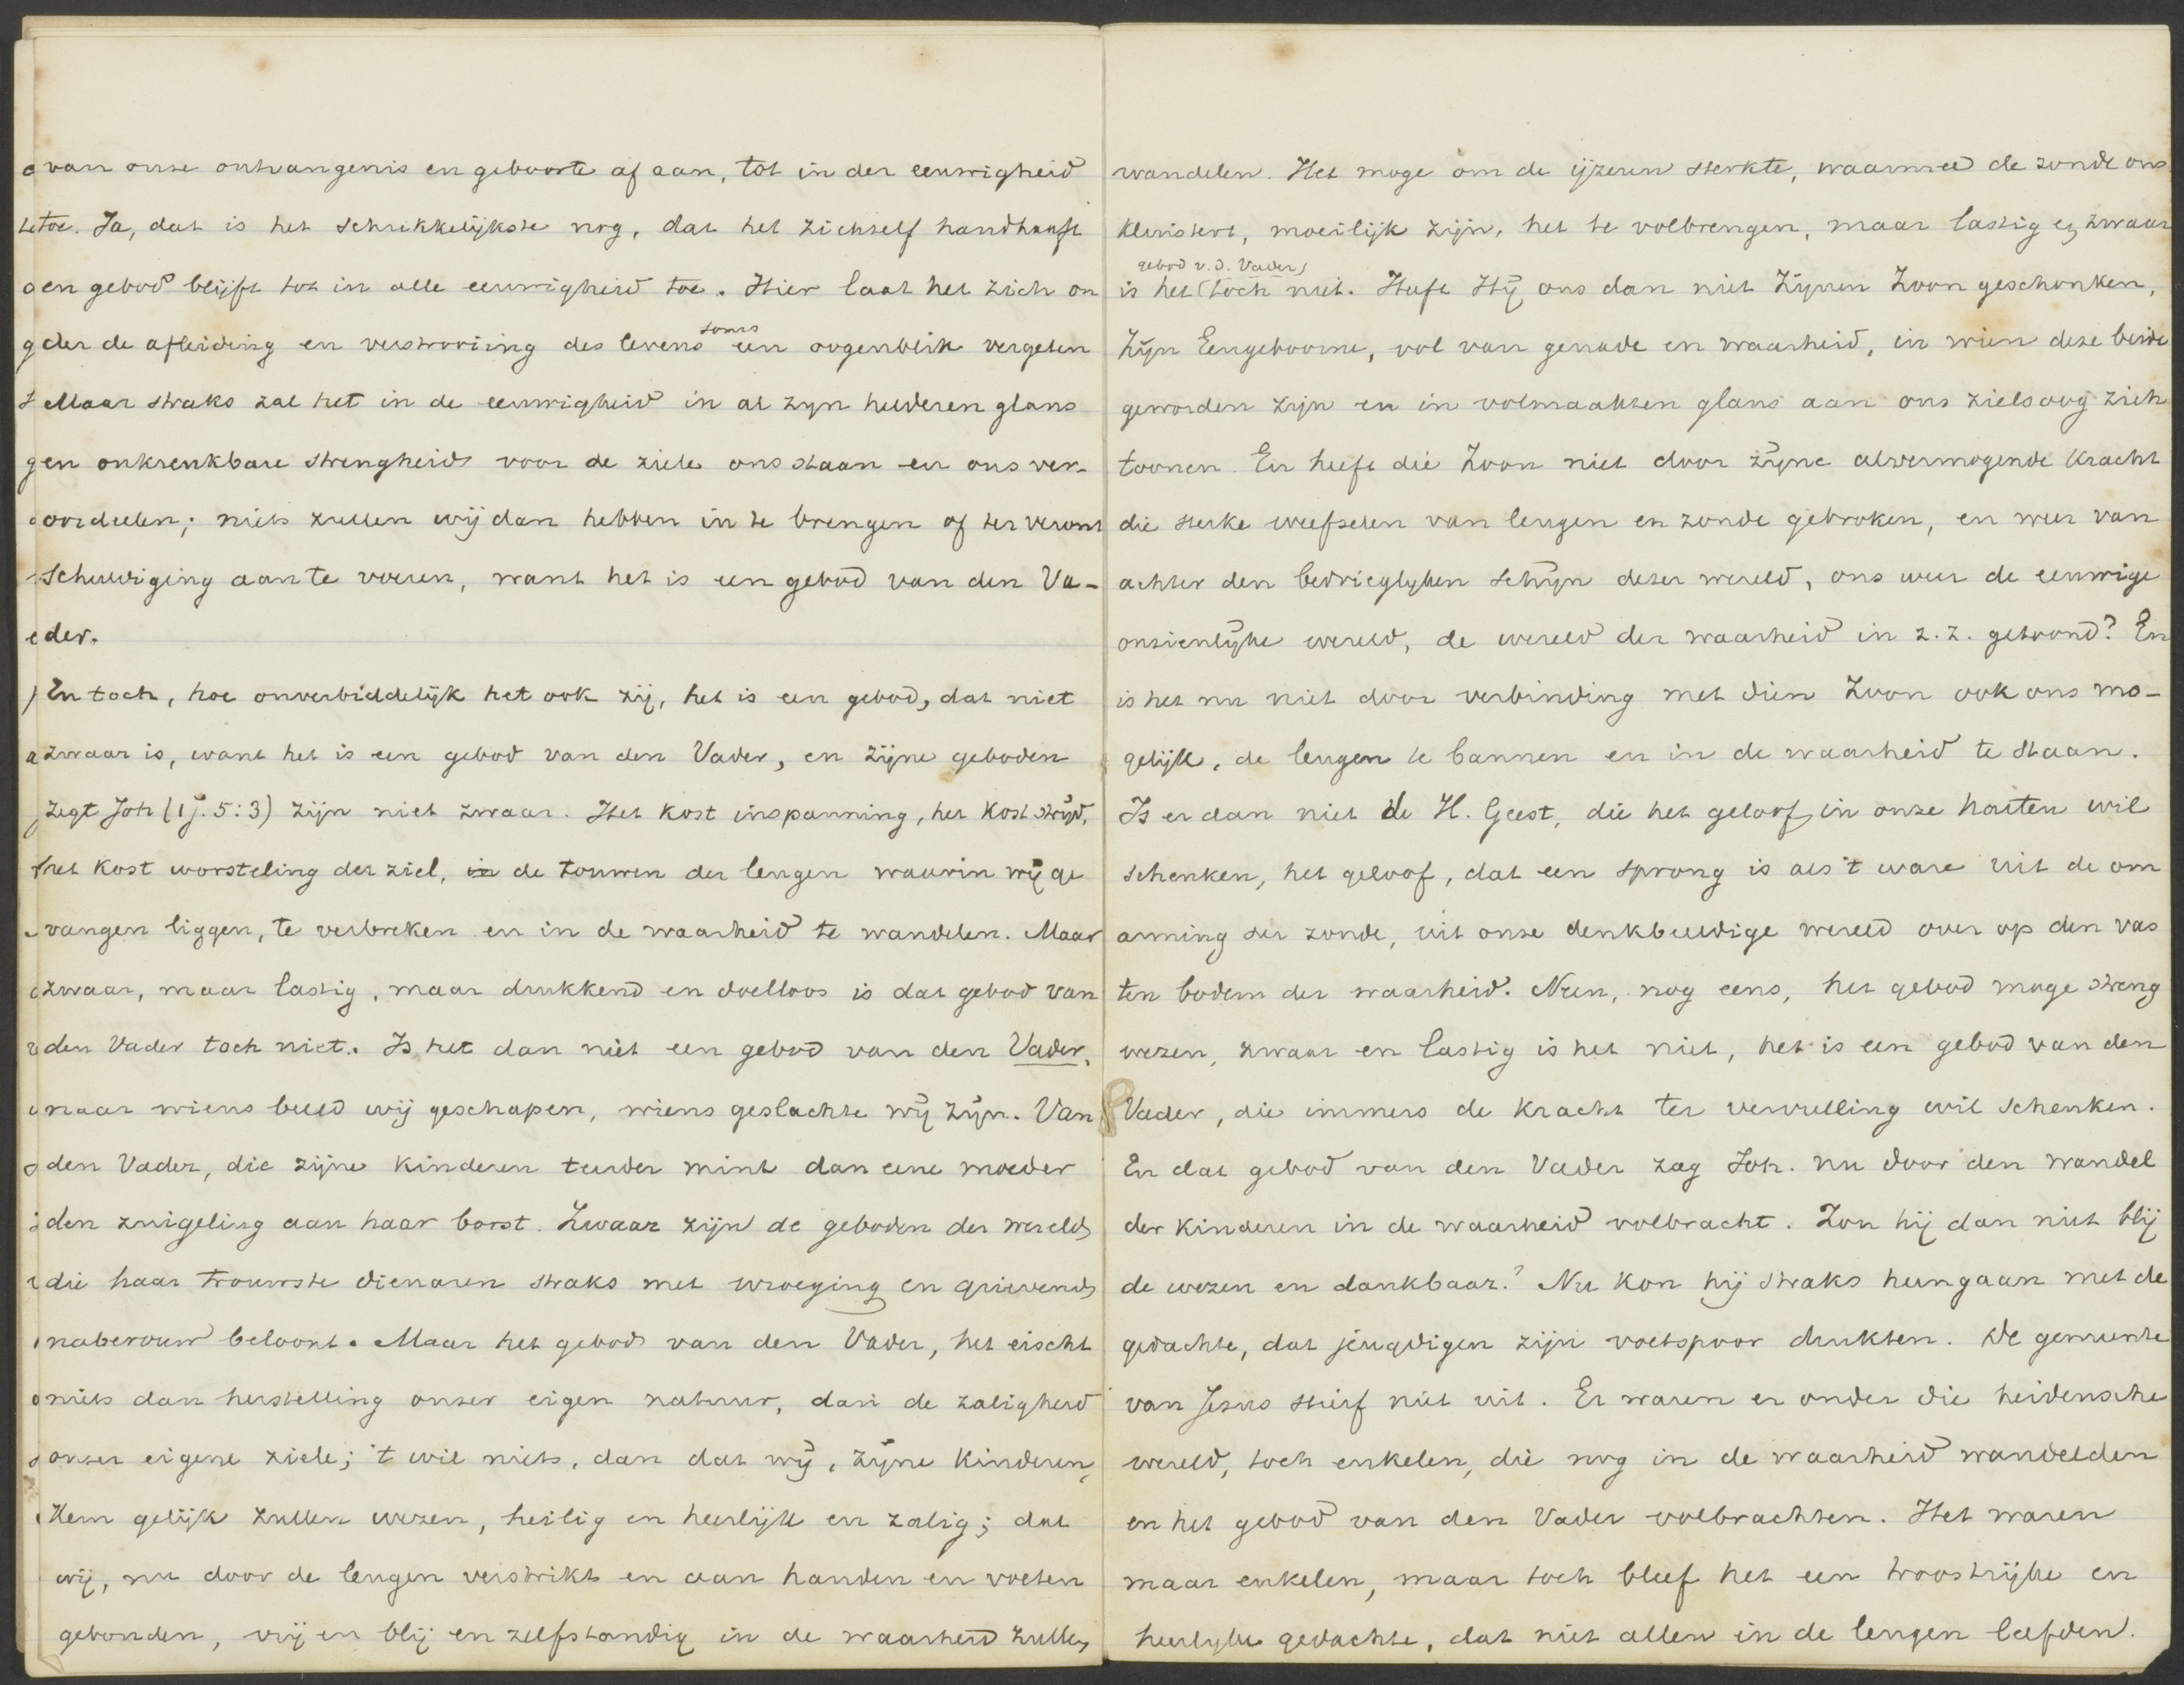 van onze ontvangenis en geboorte af aan, tot in der eeuwigheid
toe. Ja, dat is het schrikkelijkste nog, dat het zichzelf handhaaft
en gebod blijft tot in alle eeuwigheid toe. Hier laat het zich on
der de afleiding en verstrooiing des levens soms een oogenblik vergeten
Maar straks zal het in de eeuwigheid in al zyn helderen glans
en onkrenkbare strengheid voor de ziele ons staan en ons ver-
oordeelen; niets zullen wij dan hebben in te brengen of ter veront
schuldiging aan te voeren, want het is een gebod van den Va-
der.
En toch, hoe onverbiddelijk het ook zij, het is een gebod, dat niet
zwaar is, want het is een gebod van den Vader, en zijne geboden
zegt Joh (1 J. 5:3) zijn niet zwaar. Het kost inspanning, het kost strijd,
het kost worsteling der ziel, in de touwen der leugen waarin wij ge
vangen liggen, te verbreken en in de waarheid te wandelen. Maar
zwaar, maar lastig, maar drukkend en doelloos is dat gebod van
den Vader toch niet. Is het dan niet een gebod van den Vader,
naar wiens beeld wij geschapen, wiens geslachte wij zijn. Van
den Vader, die zijne kinderen teerder mint dan eene moeder
den zuigeling aan haar borst. Zwaar zijn de geboden der wereld,
die haar trouwste dienaren straks met wroeging en grievend
naberouw beloont. Maar het gebod van den Vader, het eischt
niets dan herstelling onzer eigen natuur, dan de zaligheid
onzer eigene ziele; 't wil niets, dan dat wij, zijne kinderen,
Hem gelijk zullen wezen, heilig en heerlijk en zalig; dat
wij, nu door de leugen verstrikt en aan handen en voeten
gebonden, vrij en blij en zelfstandig in de waarheid zullen
wandelen. Het moge om de ijzeren sterkte, waarmee de zonde ons
kluistert, moeilijk zijn, het te volbrengen, maar lastig en zwaar
gebod v.d. Vader)
is het (toch niet. Heeft Hij ons dan niet Zijnen Zoon geschonken,
Zijn Eengeboorne, vol van genade en waarheid, in wien deze beide
geworden zijn en in volmaakten glans aan ons zielsoog zich
toonen. En heeft die Zoon niet door zijne alvermogende kracht
die sterke weefselen van leugen en zonde gebroken, en weer van
achter den bedrieglyken schijn dezer wereld, ons weer de eeuwige
onzienlijke wereld, de wereld der waarheid in z. z. getoond? En
is het nu niet door verbinding met dien Zoon ook ons mo-
gelijk, de leugen te bannen en in de waarheid te staan.
Is er dan niet de H. Geest, die het geloof in onze harten wil
schenken, het geloof, dat een sprong is als 't ware uit de om
arming der zonde, uit onze denkbeeldige wereld over op den vas
ten bodem der waarheid. Neen, nog eens, het gebod moge streng
wezen, zwaar en lastig is het niet, het is een gebod van den
Vader, die immers de kracht ter vervulling wil schenken.
En dat gebod van den Vader zag Joh. nu door den wandel
der kinderen in de waarheid volbracht. Zou hij dan niet blij
de wezen en dankbaar? Nu kon hij straks heengaan met de
gedachte, dat jeugdigen zijn voetspoor drukten. De gemeente
van Jezus stierf niet uit. Er waren er onder die heidensche
wereld, toch enkelen, die nog in de waarheid wandelden
en het gebod van den Vader volbrachten. Het waren
maar enkelen, maar toch bleef het een troostrijke en
heerlyke gedachte, dat niet allen in de leugen leefden.